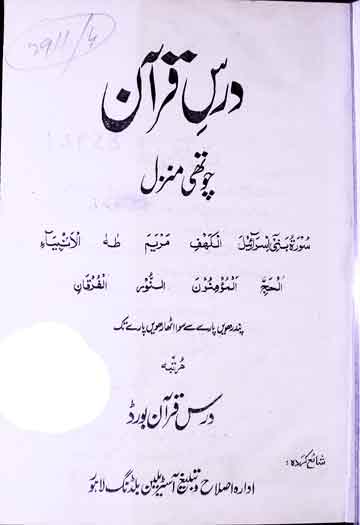 2911/4
درسِ قرآن
چوتھی منزل
سُوْرَۃُ بَنِیْٓ اِسْرَآءِیْلَ اَلْکَھْفِ مَرْیَمَ طٰہٰ اَلْاَنْبِیَآءِ
اَلْحَجِّ اَلْمُؤْمِنُوْنَ اَلنُّوْرِ اَلْفُرْقَانِ
پندرھویں پارے سے سوا اٹھارھویں پارے تک
مرتبہ
درس قرآن بورڈ
شائع کردہ :
ادارہ اصلاح و تبلیغ آسٹریلین بلڈنگ لاہور